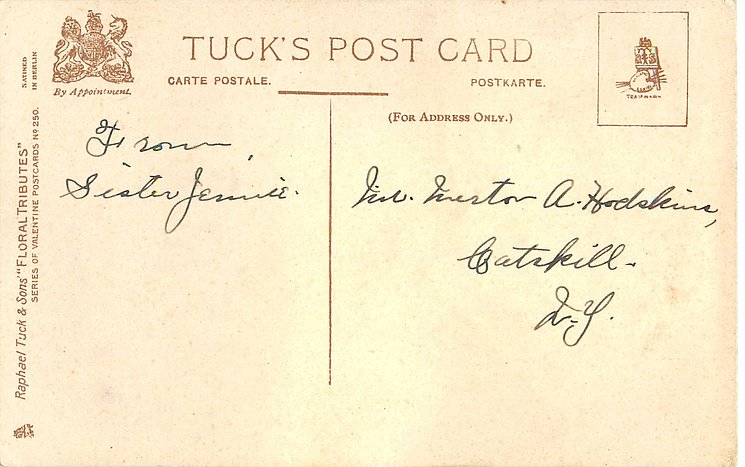 TUCK'S POST CARD
CARTE POSTALE.
POSTKARTE.
(FOR ADDRESS ONLY.)
By Appointment.
SATINED
IN BERLIN
Raphael Tuck & Sons' "FLORAL TRIBUTES"
SERIES OF VALENTINE POSTCARDS Nº 250.
From,
Sister Jennie.
Mr. Merton A. Hodskins,
Catskill.
N.Y.